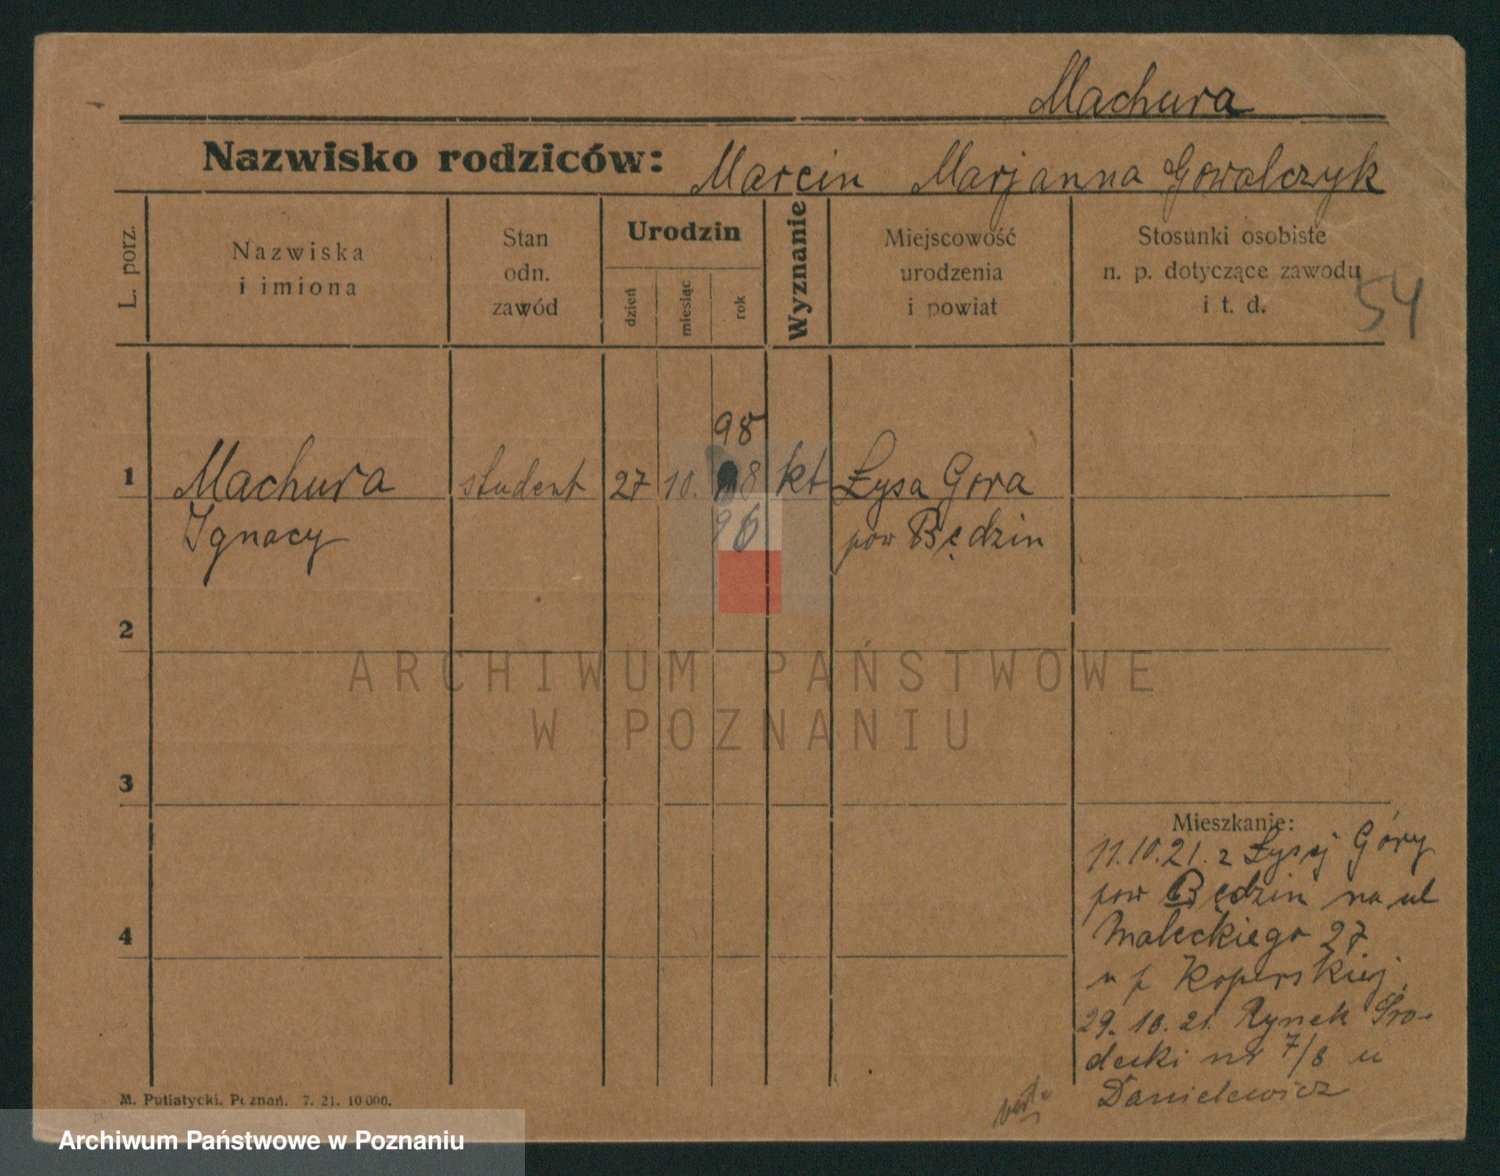 Machura
Nazwisko rodziców: Marcin Marjanna Gowalczyk
L. porz.
Nazwiska
i imiona
Stan
odn.
zawód
Urodzin
dzień
miesiąc
rok
Wyznanie
Miejscowość
urodzenia
i powiat
Stosunki osobiste
n. p. dotyczące zawodu
i t. d.
54
98
1 Machura student 27 10. 8 kt Łysa Gora
Ignacy 96 pow Będzin
2
3
4
Mieszkanie:
11.10.21. z Łysej Góry
pow Będzin na ul
Maleckiego 27
u p Koperskiej
29.10.21. Rynek Śro-
decki nr 7/8 u
Danielewicz
M. Putiatycki, Poznań. 7. 21. 10 000.
ARCHIWUM PAŃSTWOWE
W POZNANIU
Archiwum Państwowe w Poznaniu